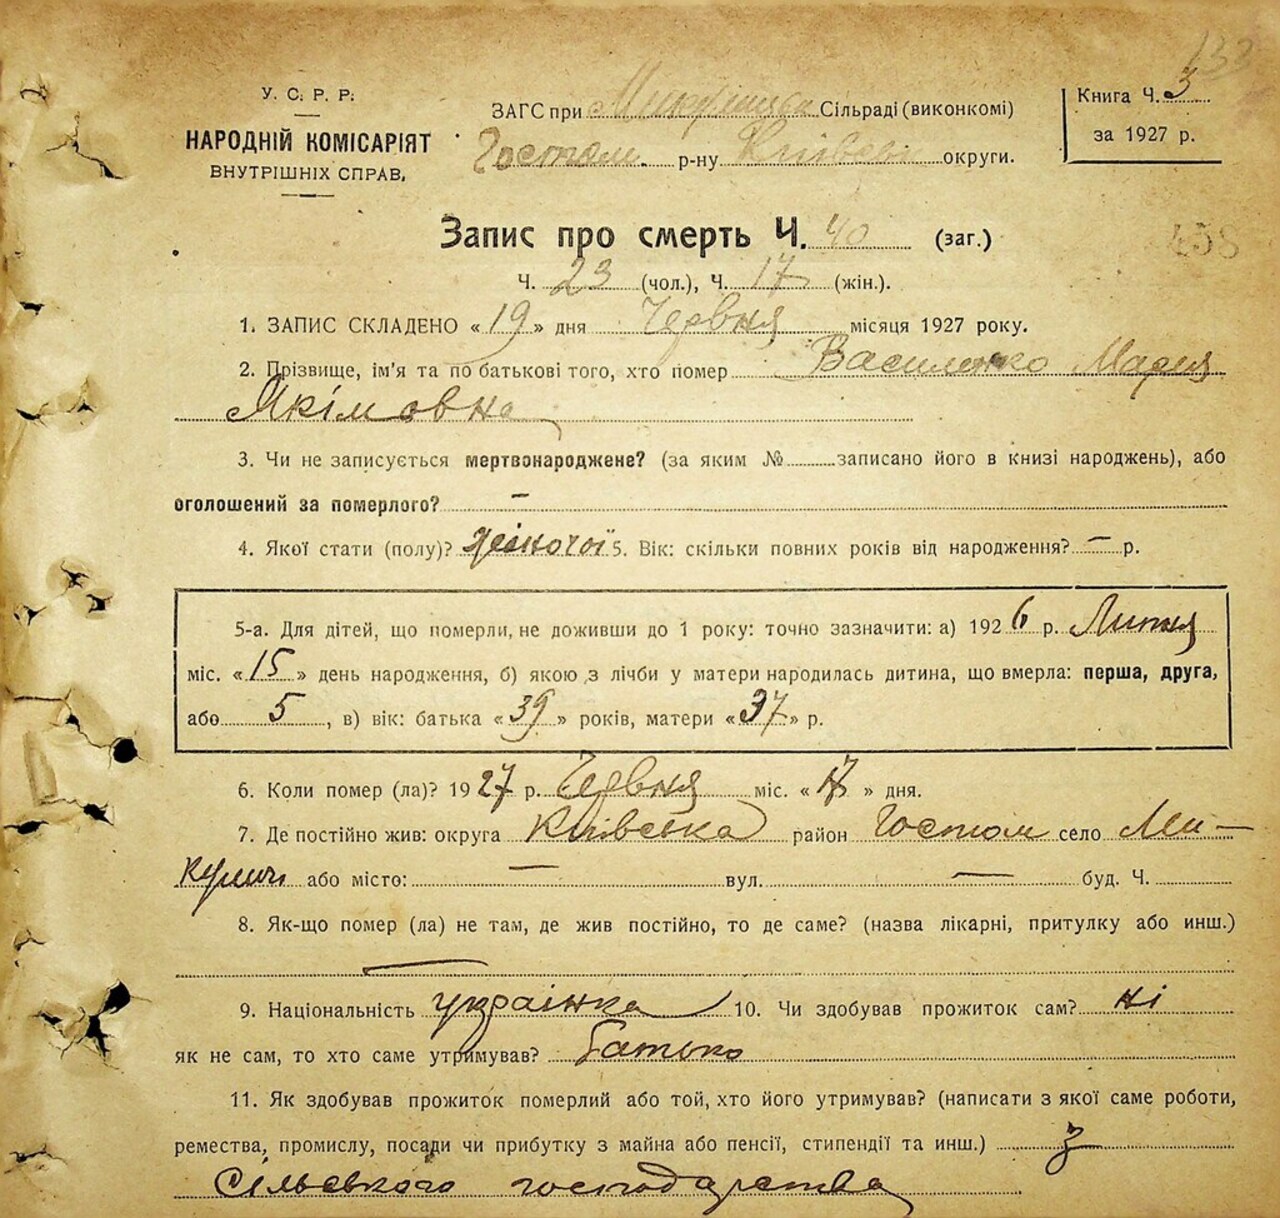 133
У. С. Р. Р.
НАРОДНІЙ КОМІСАРІЯТ
ВНУТРІШНІХ СПРАВ.
ЗАГС при Сільраді (виконкомі)
Гостом. р-ну Київськ округи.
Книга Ч. 3
за 1927 р.
Запис про смерть Ч. 40 (заг.)
458
Ч. 23 (чол.), Ч. 17 (жін.).
1. ЗАПИС СКЛАДЕНО «19» дня Червня місяця 1927 року.
2. Прізвище, ім'я та по батькові того, хто помер Василенко Мария
Якімовна
3. Чи не записується мертвонароджене? (за яким № записано його в книзі народжень), або
оголошений за померлого? –
4. Якої стати (полу)? жіночої 5. Вік: скільки повних років від народження? – р.
5-а. Для дітей, що померли, не доживши до 1 року: точно зазначити: а) 1926 р. Липня
міс. «15» день народження, б) якою з лічби у матери народилась дитина, що вмерла: перша, друга,
або 5, в) вік: батька «39» років, матери «37» р.
6. Коли помер (ла)? 1927 р. Червня міс. «17» дня.
7. Де постійно жив: округа Київська район Гостом село Ми-
куличі або місто: – вул. – буд. Ч.
8. Як-що помер (ла) не там, де жив постійно, то де саме? (назва лікарні, притулку або инш.)
–
9. Національність українка 10. Чи здобував прожиток сам? ні
як не сам, то хто саме утримував? батько
11. Як здобував прожиток померлий або той, хто його утримував? (написати з якої саме роботи,
ремества, промислу, посади чи прибутку з майна або пенсії, стипендії та инш.) з
сільського господарства